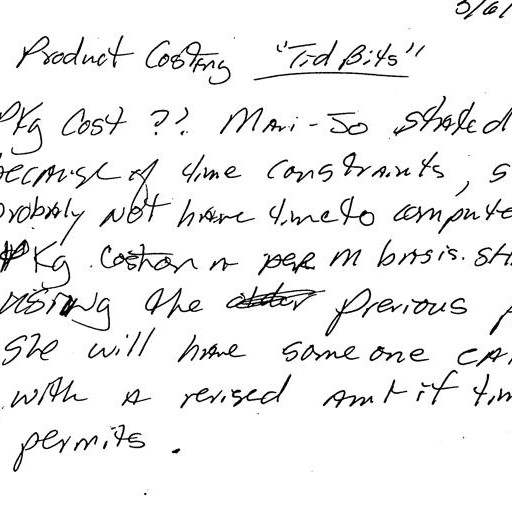 5/6/
Product Costing "Tid Bits"
Pkg Cost ?? Mari-Jo stated
because of time constraints, s
probably not have time to compute
Pkg Cost on a per M basis. sh
using the previous p
She will have someone ca
with a revised amt if tim
permits.